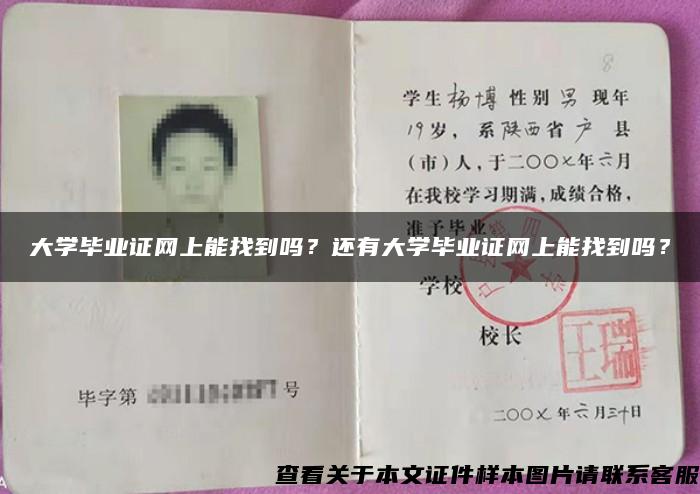 8
学生杨博性别男现年
19岁，系陕西省户县
(市)人，于二〇〇七年六月
在我校学习期满，成绩合格，
准予毕业
大学毕业证网上能找到吗？还有大学毕业证网上能找到吗？
学校
校长
毕字第
号
二〇〇七年六月三十日
查看关于本文证件样本图片请联系客服